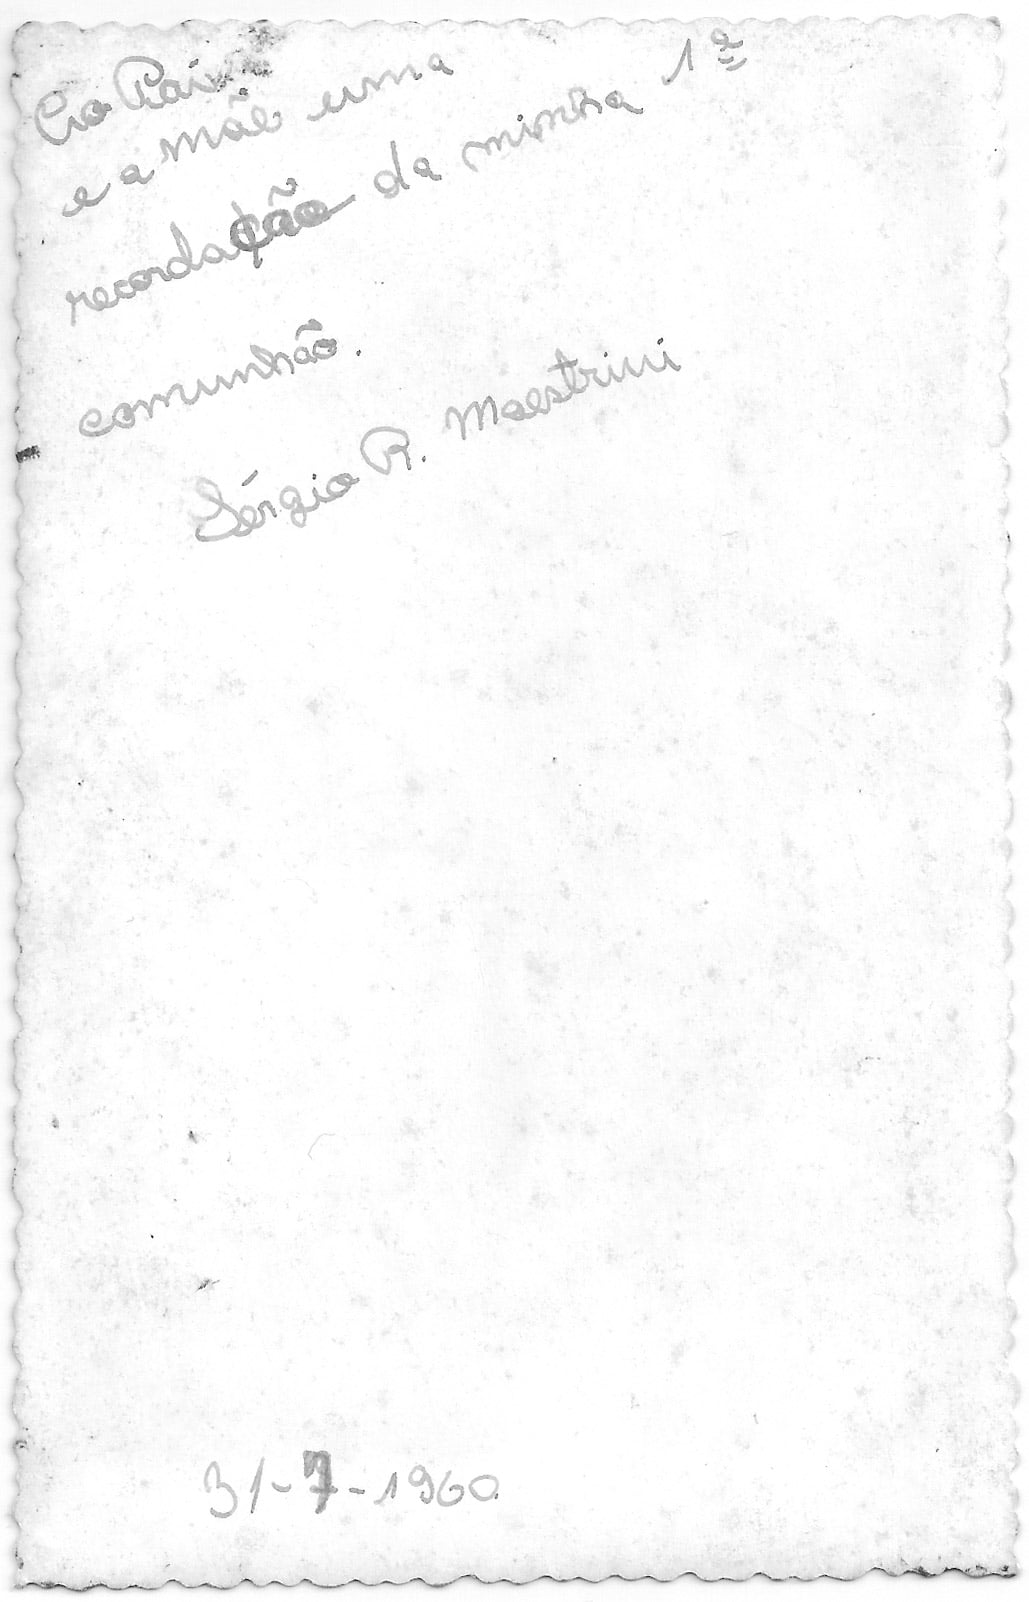 Ao Pai
e a mãe uma
recordação da minha 1ª
comunhão.
Sérgio R. Maestrini
31-7-1960